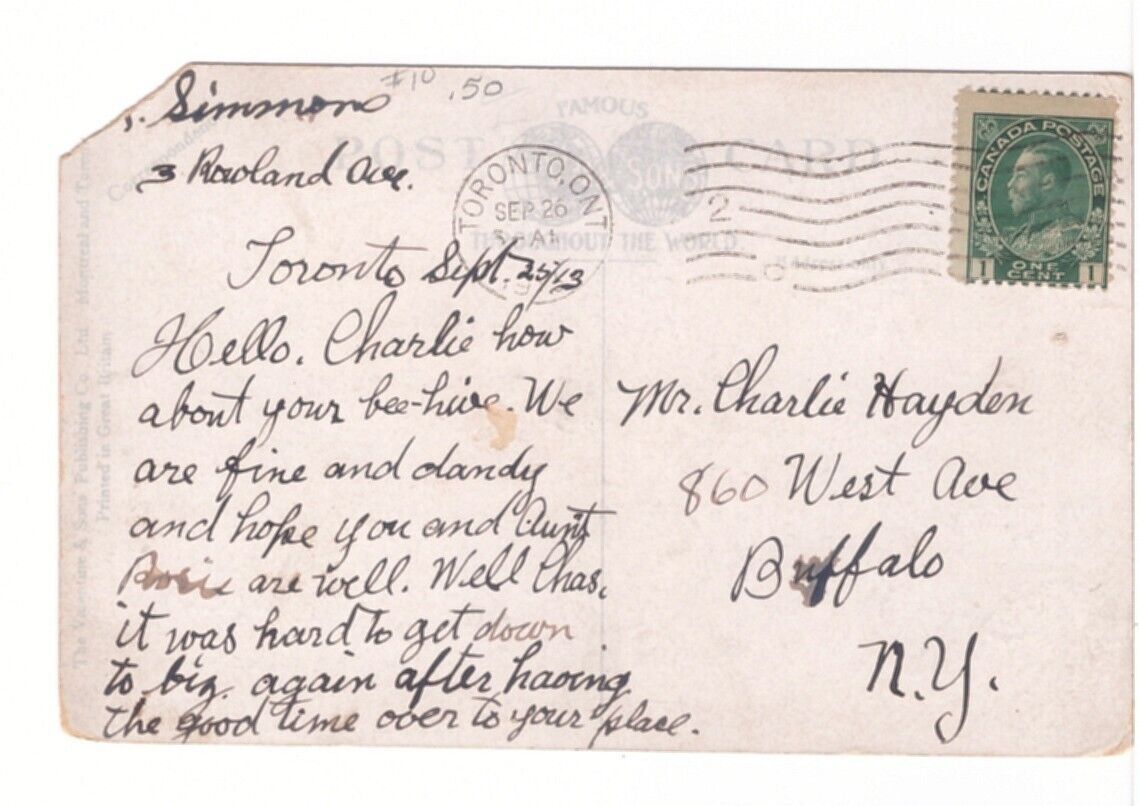 #10 .50
. Simmons
3 Rowland Ave.
Toronto Sept. 25/13
Hello. Charlie how
about your bee-hive. We
are fine and dandy
and hope you and Aunt
Rosie are well. Well Chas.
it was hard to get down
to biz. again after having
the good time over to your place.
Mr. Charlie Hayden
860 West Ave
Buffalo
N.Y.
POST CARD
FAMOUS
SONS
THROUGHOUT THE WORLD
TORONTO, ONT
SEP 26
2
CANADA POSTAGE
1 ONE CENT 1
The Valentine & Sons Publishing Co. Ltd. Montreal and
Printed in Great Britain